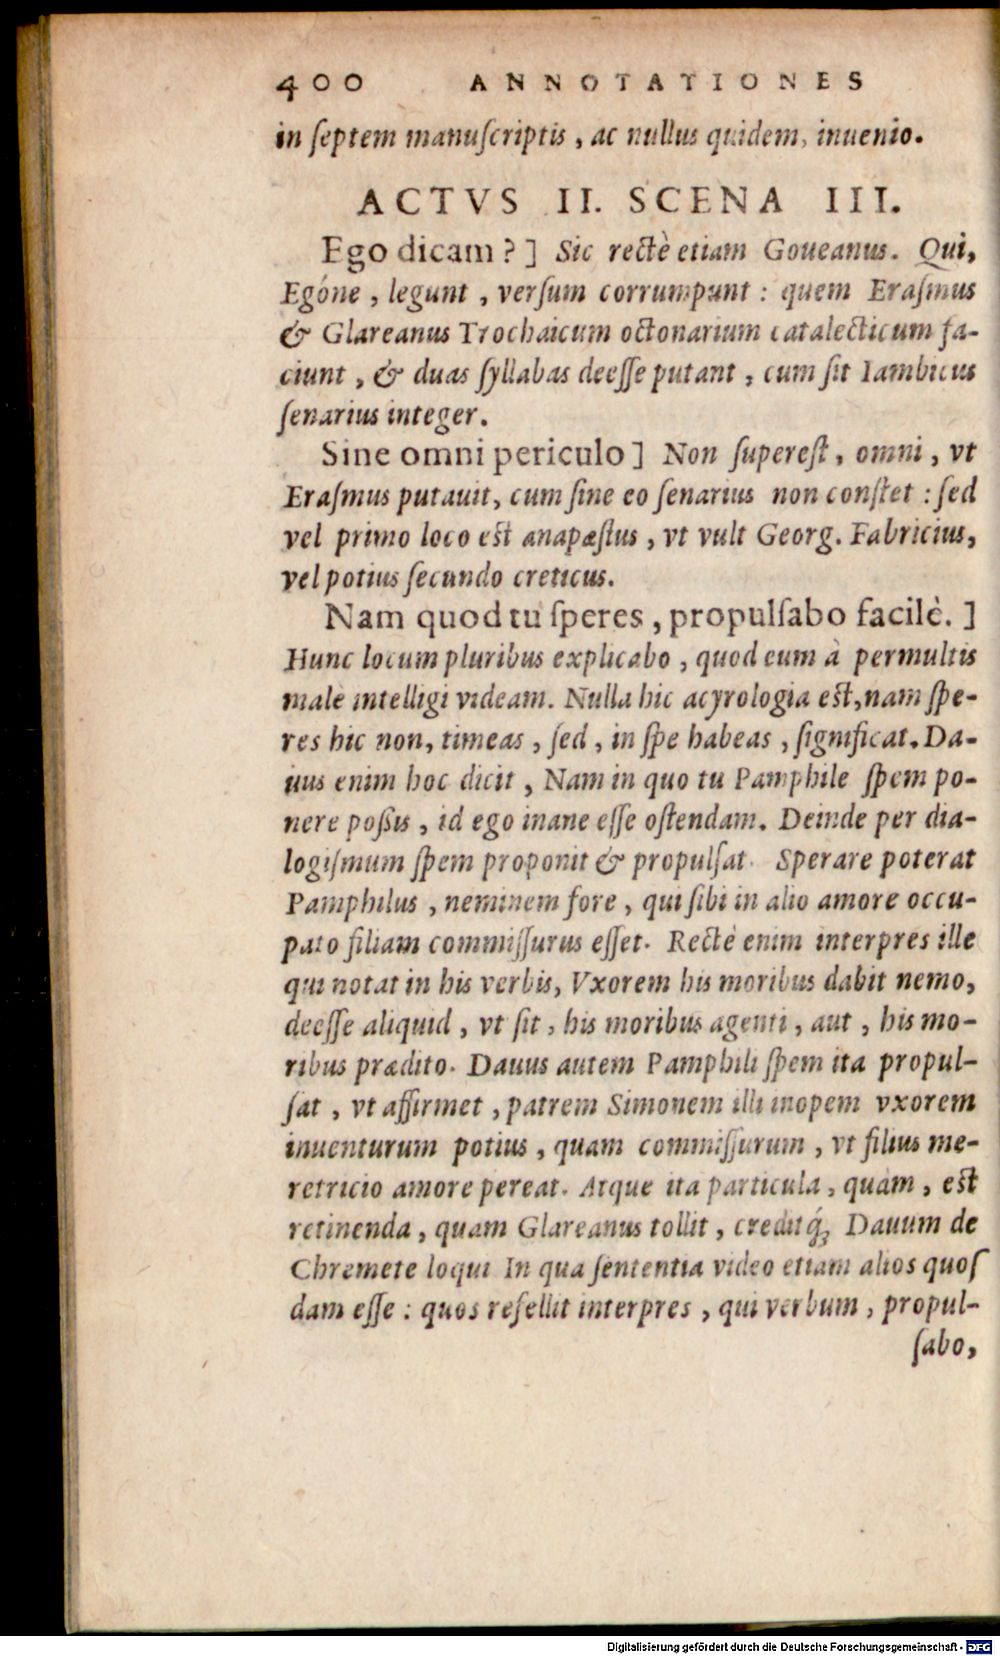 400 ANNOTATIONES
in ſeptem manuſcriptis, ac nullus quidem, inuenio.
ACTVS II. SCENA III.
Ego dicam?] Sic rectè etiam Goueanus. Qui,
Egóne, legunt, verſum corrumpunt: quem Eraſmus
& Glareanus Trochaicum octonarium catalecticum fa-
ciunt, & duas ſyllabas deeſſe putant, cum ſit Iambicus
ſenarius integer.
Sine omni periculo] Non ſupereſt, omni, vt
Eraſmus putauit, cum ſine eo ſenarius non conſtet: ſed
vel primo loco est anapæſtus, vt vult Georg. Fabricius,
vel potius ſecundo creticus.
Nam quod tu ſperes, propulſabo facilè.]
Hunc locum pluribus explicabo, quod eum à permultis
malè intelligi videam. Nulla hic acyrologia est, nam ſpe-
res hic non, timeas, ſed, in ſpe habeas, ſignificat. Da-
uus enim hoc dicit, Nam in quo tu Pamphile ſpem po-
nere poßis, id ego inane eſſe oſtendam. Deinde per dia-
logiſmum ſpem proponit & propulſat. Sperare poterat
Pamphilus, neminem fore, qui ſibi in alio amore occu-
pato filiam commiſſurus eſſet. Rectè enim interpres ille
qui notat in his verbis, Vxorem his moribus dabit nemo,
deeſſe aliquid, vt ſit, his moribus agenti, aut, his mo-
ribus prædito. Dauus autem Pamphili ſpem ita propul-
ſat, vt affirmet, patrem Simonem illi inopem vxorem
inuenturum potius, quam commiſſurum, vt filius me-
retricio amore pereat. Atque ita particula, quàm, est
retinenda, quam Glareanus tollit, creditq́; Dauum de
Chremete loqui In qua ſententia video etiam alios quoſ
dam eſſe: quos refellit interpres, qui verbum, propul-
ſabo,
Digitalisierung gefördert durch die Deutsche Forschungsgemeinschaft - DFG